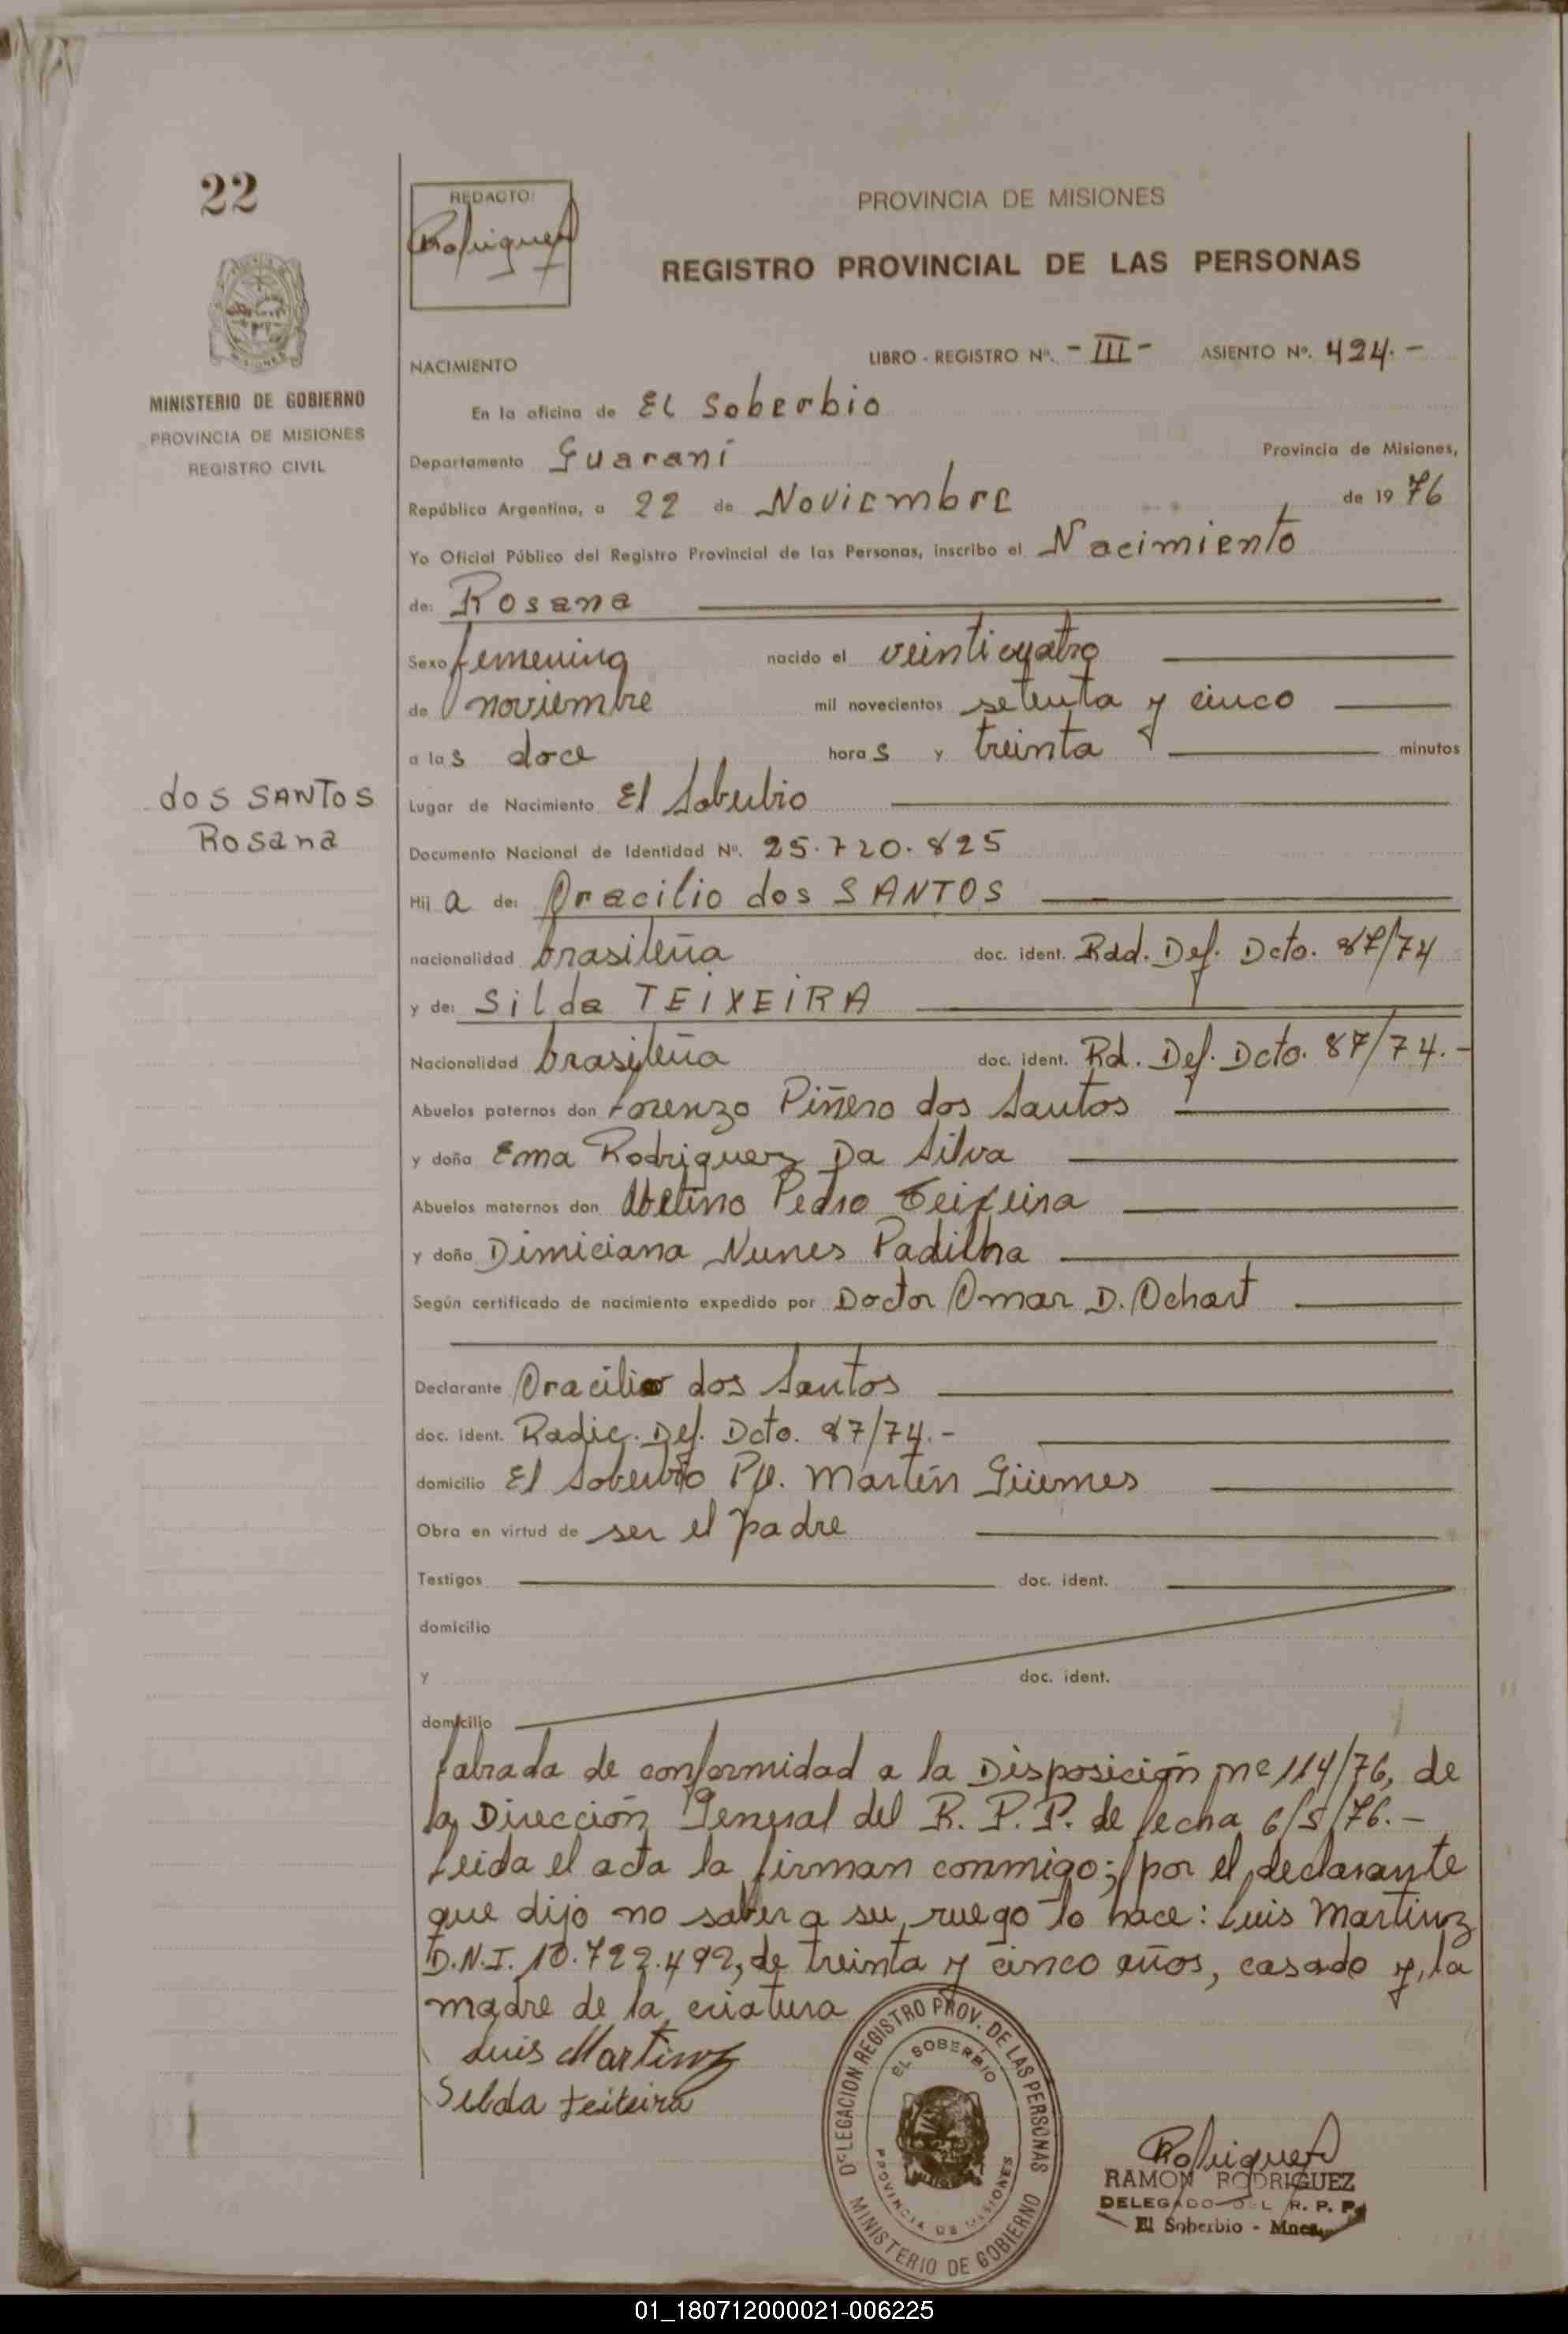 22
REDACTO:
Rodriguez
PROVINCIA DE MISIONES
REGISTRO PROVINCIAL DE LAS PERSONAS
MINISTERIO DE GOBIERNO
PROVINCIA DE MISIONES
REGISTRO CIVIL
NACIMIENTO
LIBRO - REGISTRO Nº. - III - ASIENTO Nº. 424.-
En la oficina de El Soberbio
Departamento Guaraní Provincia de Misiones,
República Argentina, a 22 de Noviembre de 1976
Yo Oficial Público del Registro Provincial de las Personas, inscribo el Nacimiento
de: Rosana
Sexo femenino nacido el veinticuatro
de noviembre mil novecientos setenta y cinco
a las doce horas y treinta minutos
dos SANTOS
Rosana
Lugar de Nacimiento El Soberbio
Documento Nacional de Identidad Nº. 25.720.825
Hija de: Oracilio dos SANTOS
nacionalidad brasileña doc. ident. Rad. Def. Dcto. 87/74
y de: Silda TEIXEIRA
Nacionalidad brasileña doc. ident. Rd. Def. Dcto. 87/74.-
Abuelos paternos don Lorenzo Piñero dos Santos
y doña Ema Rodriguez Da Silva
Abuelos maternos don Avelino Pedro Teixeira
y doña Dimiciana Nunes Padilha
Según certificado de nacimiento expedido por Doctor Omar D. Ochart
Declarante Oracilio dos Santos
doc. ident. Radic. Def. Dcto. 87/74.-
domicilio El Soberbio Pje. Martín Güemes
Obra en virtud de ser el padre
Testigos doc. ident.
domicilio
y doc. ident.
domicilio
Labrada de conformidad a la Disposición nº 114/76, de
la Dirección General del R. P. P. de fecha 6/5/76.-
Leída el acta la firman conmigo; por el declarante
que dijo no saber a su ruego lo hace: Luis Martinz
D.N.I. 10.722.492, de treinta y cinco años, casado y, la
madre de la criatura
Luis Martinz
Silda teixeira
DELEGACION REGISTRO PROV. DE LAS PERSONAS
EL SOBERBIO
PROVINCIA DE MISIONES
MINISTERIO DE GOBIERNO
Rodriguez
RAMON RODRIGUEZ
DELEGADO DEL R. P. P.
El Soberbio - Mnes.
01_180712000021-006225